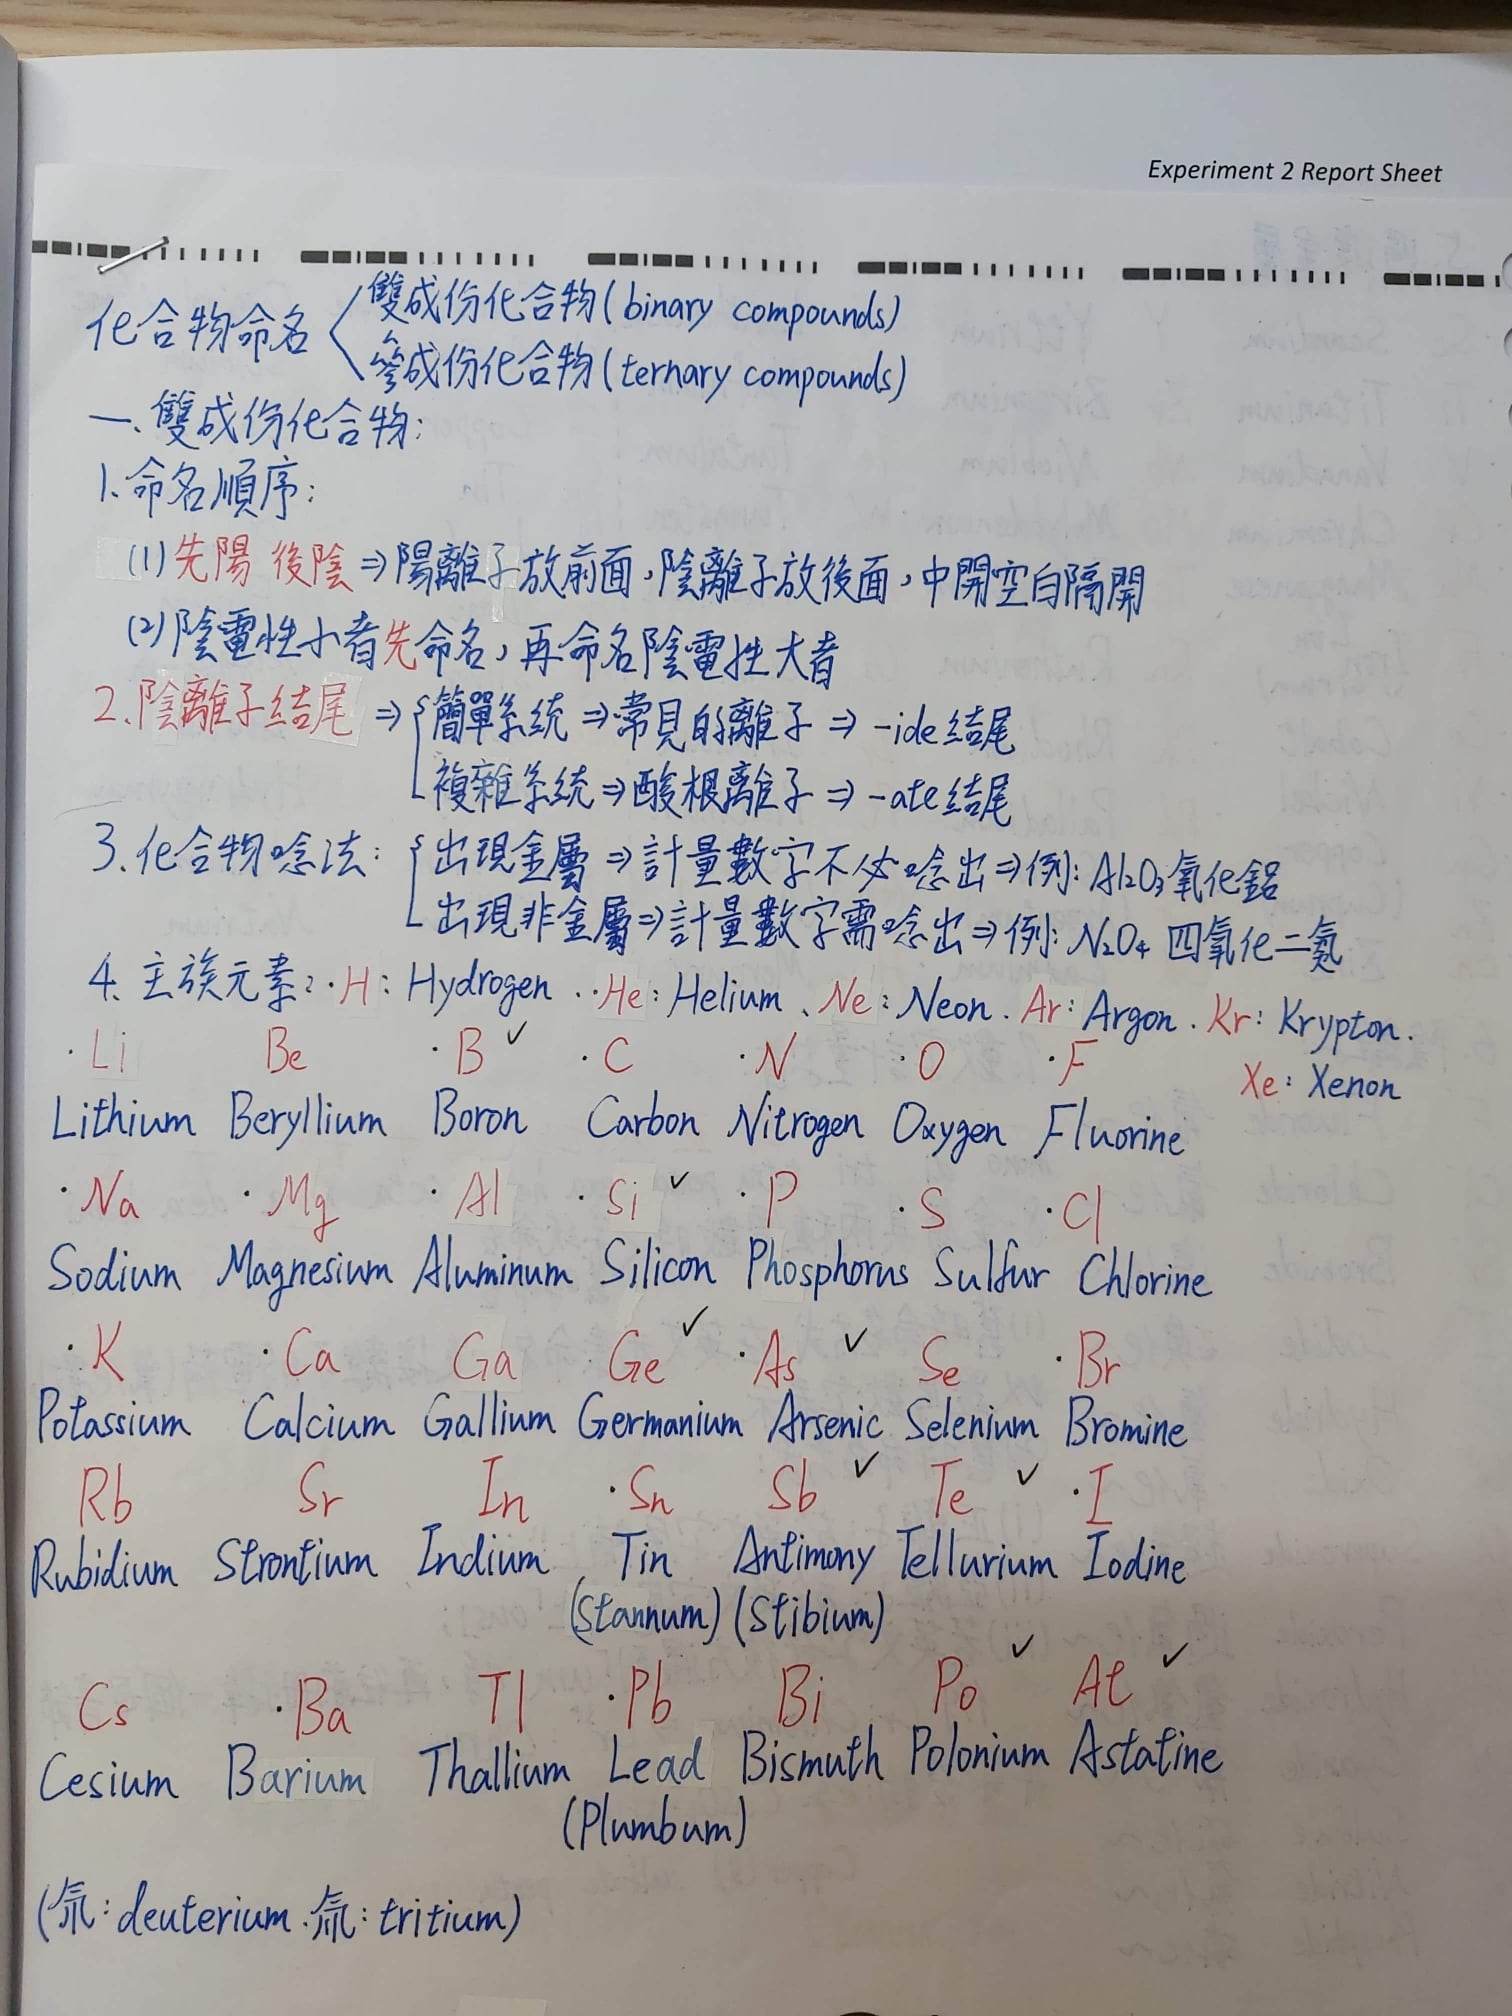 Experiment 2 Report Sheet
化合物命名
雙成份化合物(binary compounds)
叄成份化合物(ternary compounds)
一、雙成份化合物:
1、命名順序:
(1)先陽 後陰⇒陽離子放前面,陰離子放後面,中間空白隔開
(2)陰電性小者先命名,再命名陰電性大者
2.陰離子結尾 ⇒ 簡單系統 ⇒ 常見的離子 ⇒ -ide結尾
複雜系統 ⇒ 酸根離子 ⇒ -ate結尾
3.化合物唸法: 出現金屬 ⇒ 計量數字不必唸出⇒例: Al₂O₃氧化鋁
出現非金屬⇒計量數字需唸出⇒例: N₂O₄ 四氧化二氮
4. 主族元素:·H: Hydrogen ··He: Helium 、Ne: Neon . Ar: Argon . Kr: Krypton.
Xe: Xenon
·Li Be ·B ✓ ·C ·N ·O ·F
Lithium Beryllium Boron Carbon Nitrogen Oxygen Fluorine
·Na ·Mg ·Al ·Si ✓ ·P ·S ·Cl
Sodium Magnesium Aluminum Silicon Phosphorus Sulfur Chlorine
·K ·Ca Ga Ge ✓ ·As ✓ Se ·Br
Potassium Calcium Gallium Germanium Arsenic Selenium Bromine
Rb Sr In ·Sn Sb ✓ Te ✓ ·I
Rubidium Strontium Indium Tin Antimony Tellurium Iodine
(Stannum) (Stibium)
Cs ·Ba Tl ·Pb Bi Po ✓ At ✓
Cesium Barium Thallium Lead Bismuth Polonium Astatine
(Plumbum)
(氘: deuterium .氚: tritium)